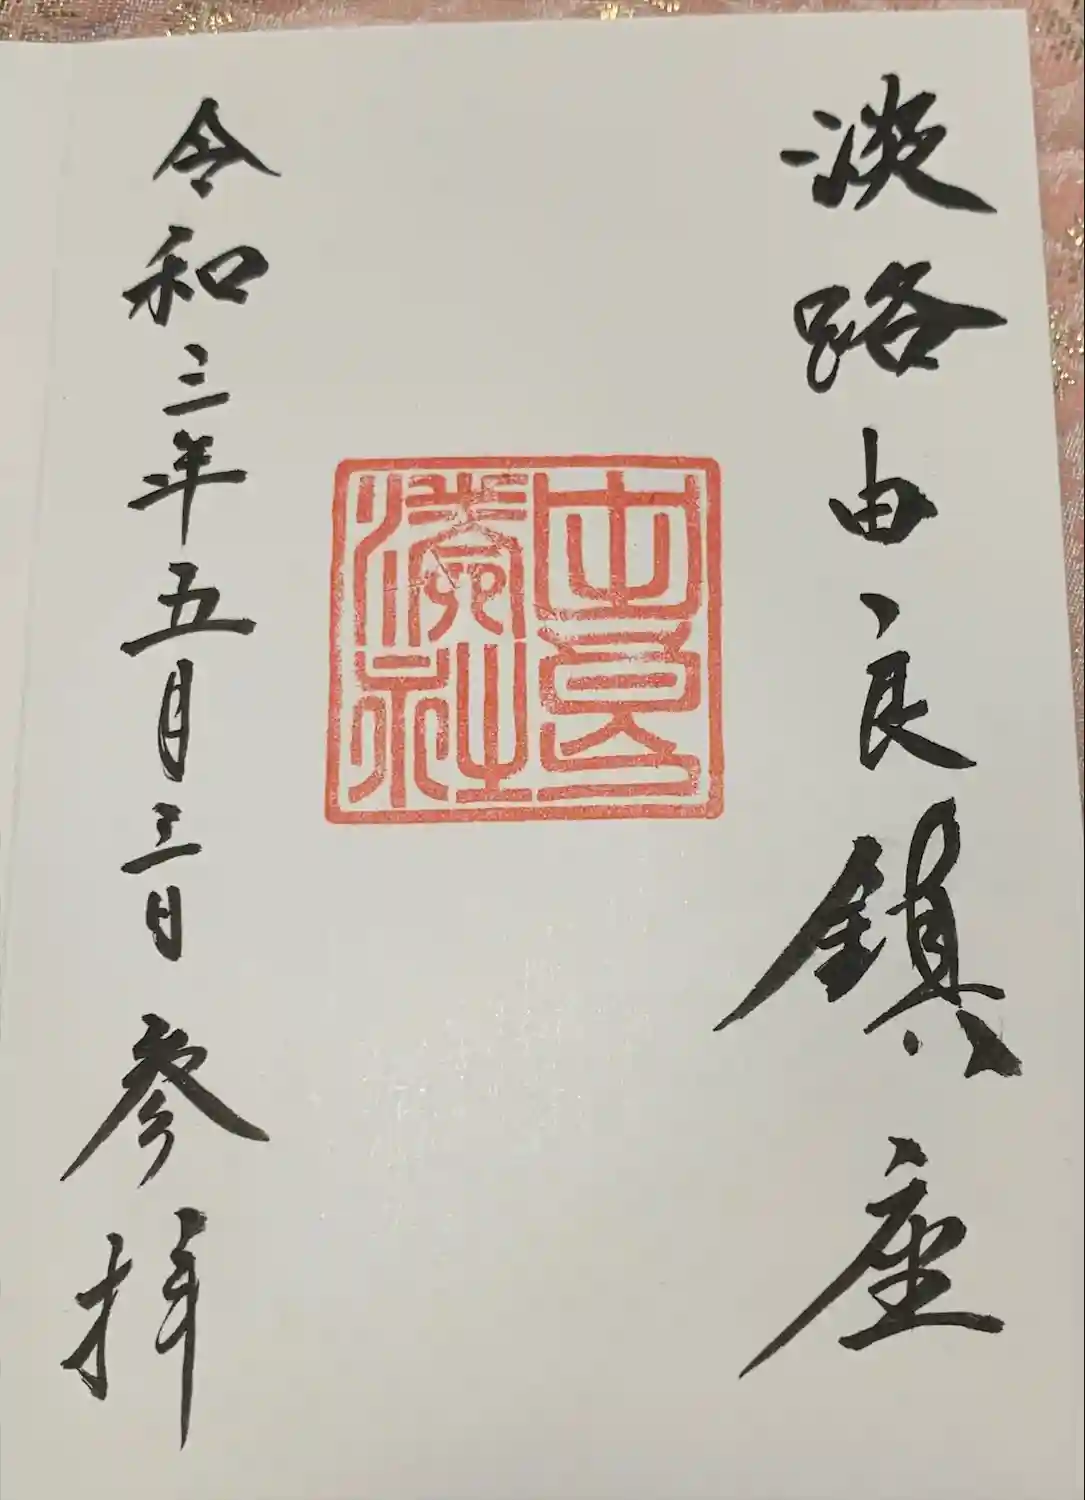 淡路由良鎮座
由良湊社
令和三年五月三日参拝